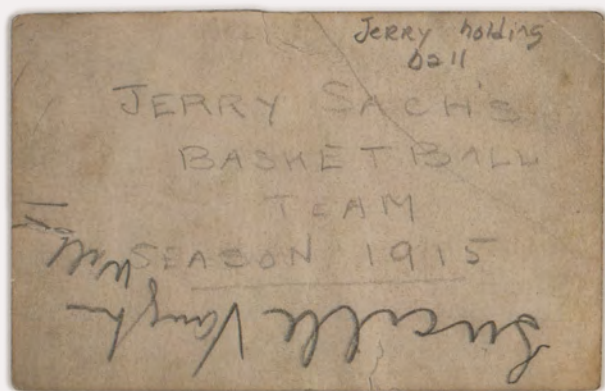 Jerry holding
ball
JERRY SACH'S
BASKET BALL
TEAM
SEASON 1915
Lucille Vaughn